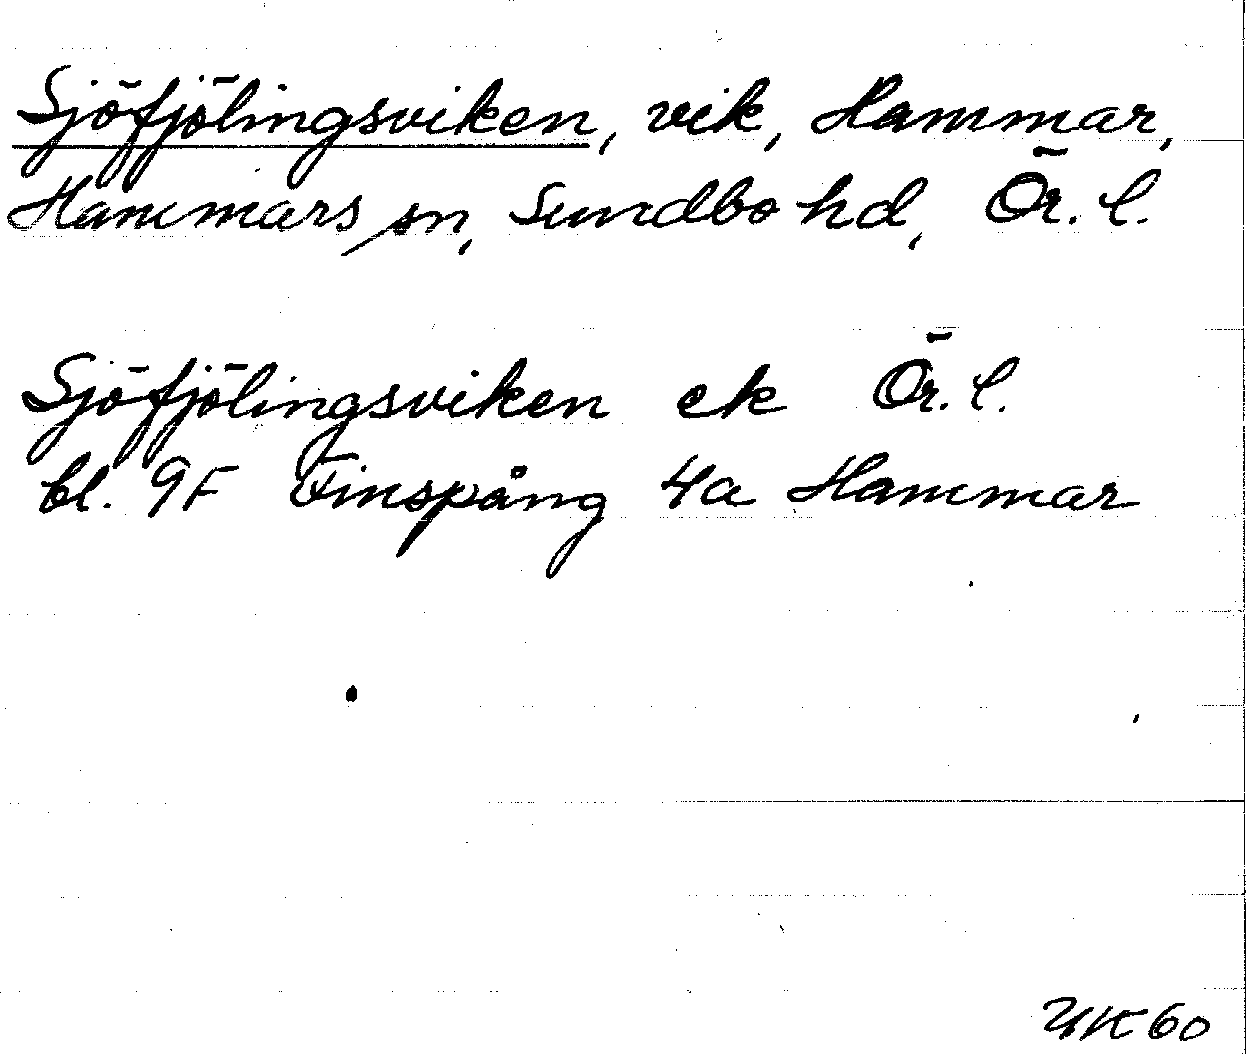 Sjöfjölingsviken, vik, Hammar,
Hammars sn, Sundbo hd, Ör. l.
Sjöfjölingsviken ek Ör. l.
bl. 9F Finspång 4a Hammar
UK 60